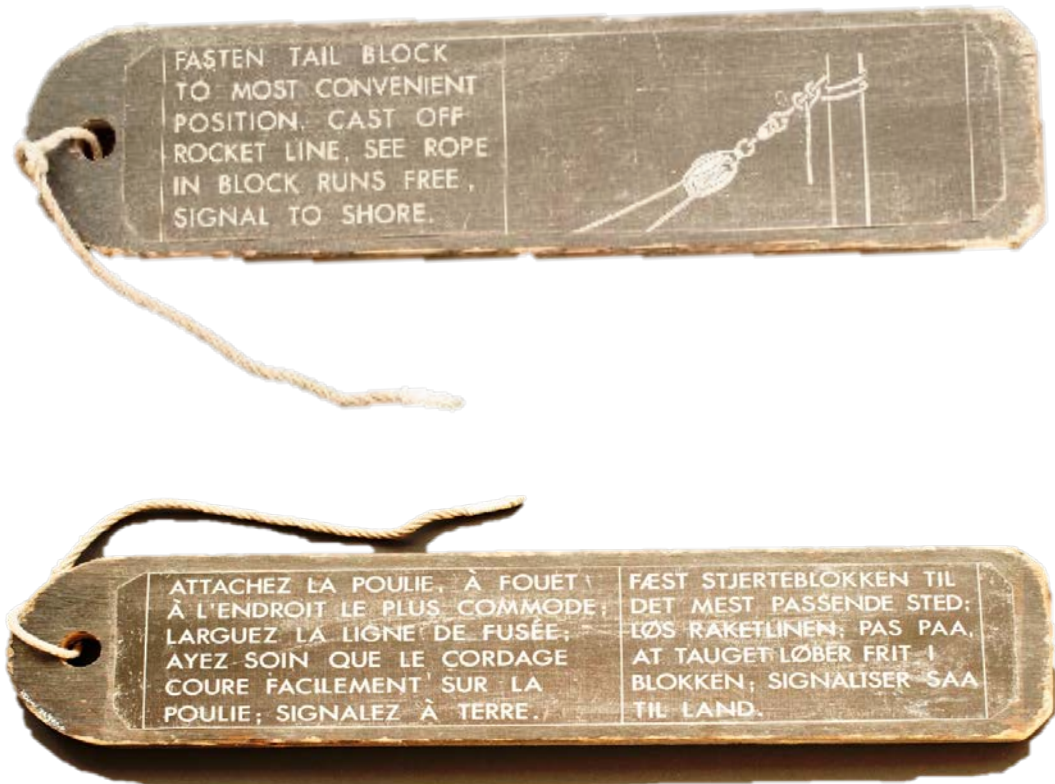 FASTEN TAIL BLOCK
TO MOST CONVENIENT
POSITION. CAST OFF
ROCKET LINE, SEE ROPE
IN BLOCK RUNS FREE,
SIGNAL TO SHORE.
ATTACHEZ LA POULIE, À FOUET
À L'ENDROIT LE PLUS COMMODE;
LARGUEZ LA LIGNE DE FUSÉE;
AYEZ SOIN QUE LE CORDAGE
COURE FACILEMENT SUR LA
POULIE; SIGNALEZ À TERRE.
FÆST STJERTEBLOKKEN TIL
DET MEST PASSENDE STED;
LØS RAKETLINEN; PAS PAA,
AT TAUGET LØBER FRIT I
BLOKKEN; SIGNALISER SAA
TIL LAND.